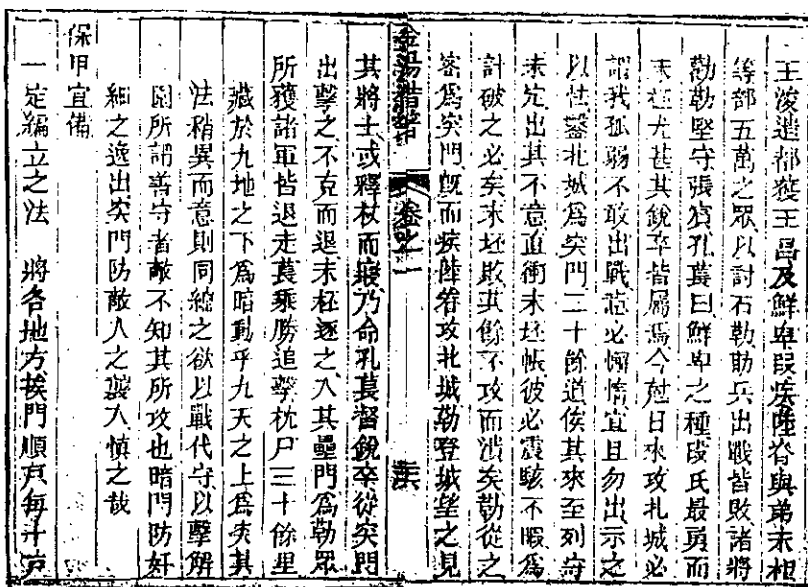 王浚遣都獲王昌及鮮卑段疾陸眷與弟末柸
等部五萬之眾以討石勒勒兵出戰皆敗諸將
勸勒堅守張賓孔萇曰鮮卑之種段氏最勇而
末柸尤甚其銳卒皆屬焉今尅日來攻北城必
謂我孤弱不敢出戰意必懈惰宜且勿出示之
以怯鑿北城為突門二十餘道俟其來至列守
未定出其不意直衝末柸帳彼必震駭不暇為
計破之必矣末柸敗其餘不攻而潰矣勒從之
密為突門既而疾陸眷攻北城勒登城望之見
金湯借箸 卷之一
其將士或釋杖而寢乃命孔萇督銳卒從突門
出擊之不克而退末柸逐之入其壘門為勒眾
所獲諸軍皆退走萇乘勝追擊枕尸三十餘里
藏於九地之下為暗動乎九天之上為突其
法稍異而意則同總之欲以戰代守以擊解
圍所謂善守者敵不知其所攻也暗門防奸
細之逸出突門防敵人之襲入慎之哉
保甲宜備
一定編立之法 將各地方挨門順戶每十戶